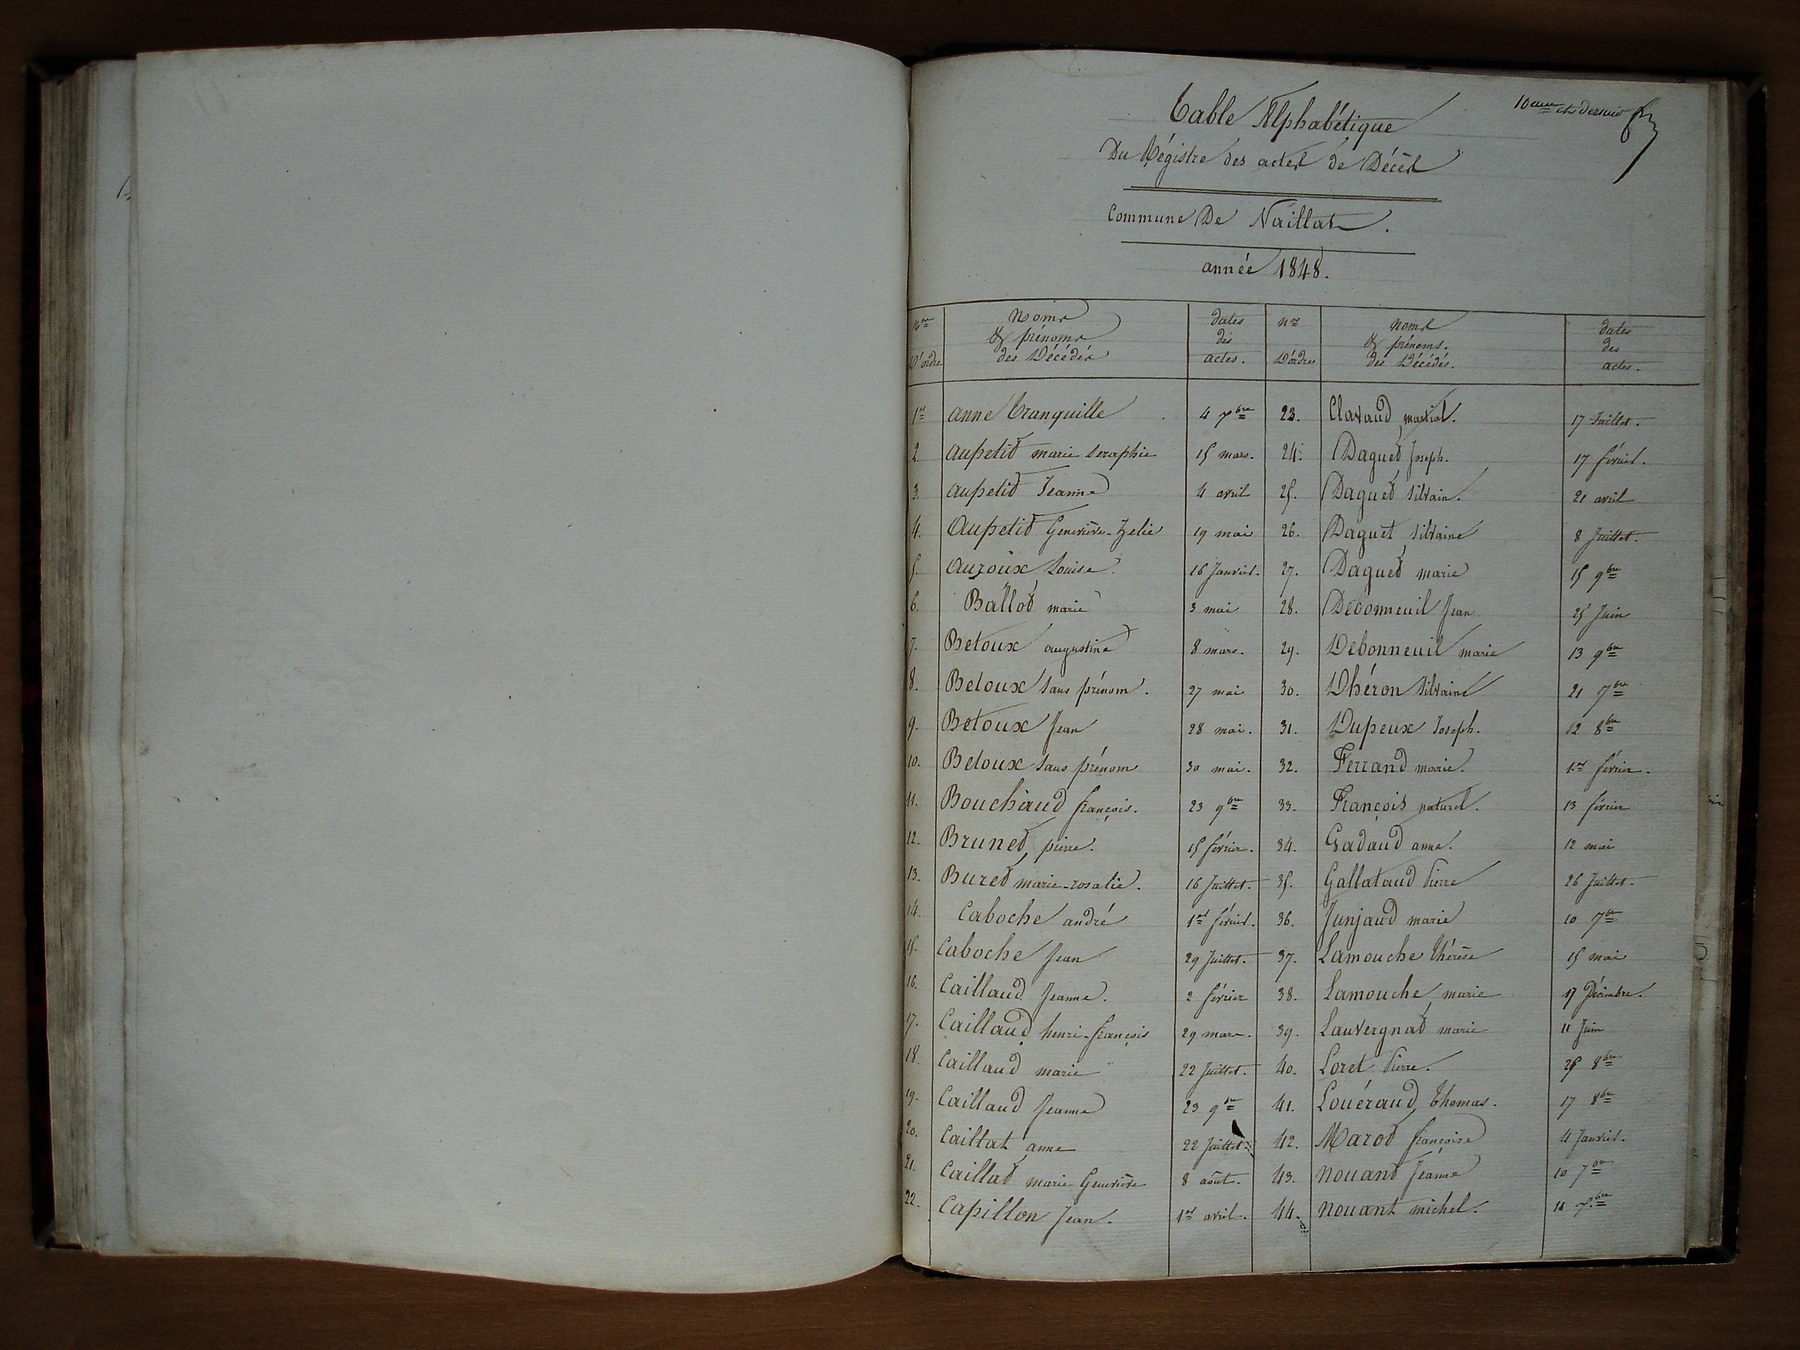 10eme et dernier
Table Alphabétique
Du Régistre des actes de Décès
Commune De Naillat.
année 1848.
nos D'ordre noms & prénoms des Décédés dates des actes. nos D'ordre noms & prénoms. des Décédés. dates des actes.
1er anne tranquille 4 7bre 23. Clavaud martial. 17 Juillet.
2. aupetit marie seraphie 15 mars. 24. Daguet Joseph. 17 février.
3. aupetit Jeanne 4 avril 25. Daguet silvain. 21 avril
4. Aupetit Geneviève-Zelie 19 mai 26. Daguet silvaine 8 Juillet.
5. auzoux Louise. 16 Janvier. 27. Daguet marie 15 9bre
6. Ballot marie 3 mai 28. Debonneuil Jean 25 Juin
7. Betoux augustine 8 mars. 29. Debonneuil marie 13 9bre
8. Betoux sans prénom. 27 mai 30. Dhéron silvaine 21 7bre
9. Betoux Jean 28 mai. 31. Dupeux Joseph. 12 8bre
10. Betoux sans prénom 30 mai. 32. Ferrand marie. 1er février.
11. Bouchaud françois. 23 9bre 33. François naturel. 13 février
12. Brunet pierre. 15 février. 34. Gadaud anne. 12 mai
13. Buret marie-rosalie. 16 Juillet. 35. Gallataud Pierre 26 Juillet.
14. Caboche andré 1er février. 36. Junjaud marie 10 7bre
15. Caboche Jean 29 Juillet. 37. Lamouche thérèse 15 mai
16. Caillaud Jeanne. 2 février 38. Lamouche marie 17 Décembre.
17. Caillaud henri-françois 29 mars. 39. Lauvergnat marie 11 Juin
18. Caillaud marie 22 Juillet. 40. Loret Pierre. 25 8bre
19. Caillaud Jeanne 23 9bre 41. Louéraud thomas. 17 8bre
20. Caillat anne 22 Juillet. 42. Marot françoise 4 Janvier.
21. Caillat marie Geneviève 8 août. 43. nouant Jeanne 10 7bre
22. Capillon Jean. 1er avril. 44. nouant michel. 11 7bre